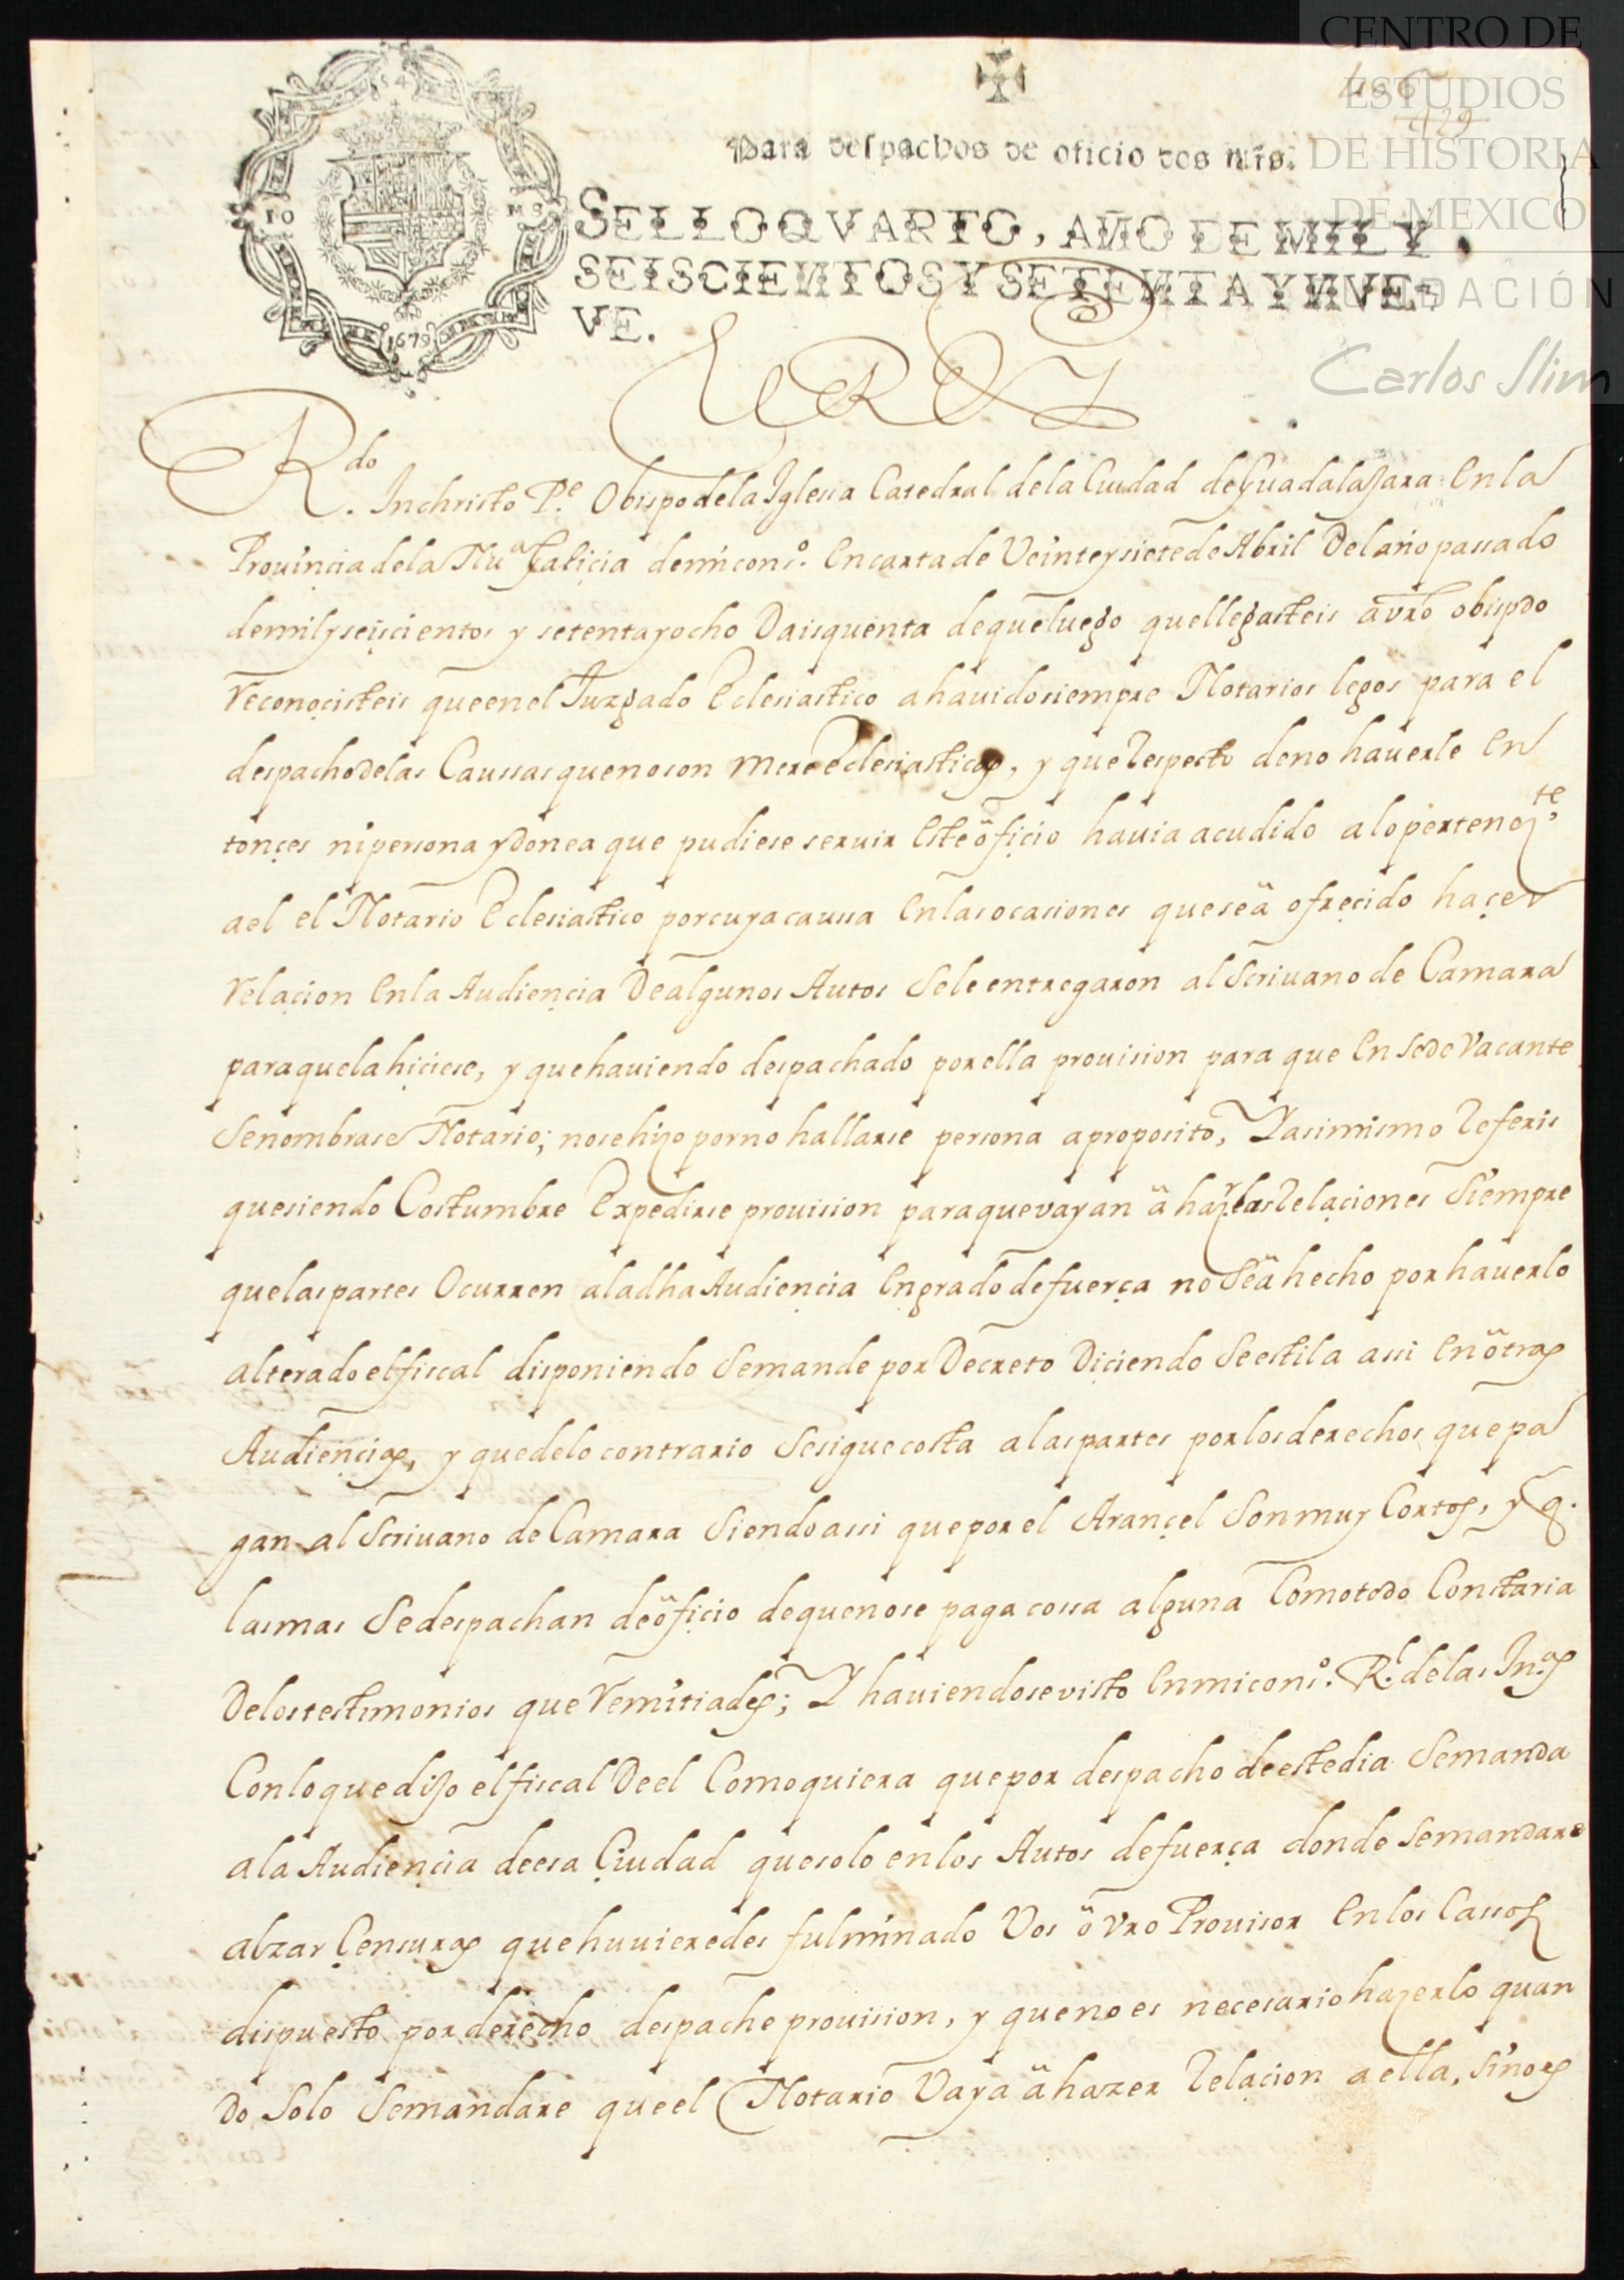 CENTRO DE
ESTUDIOS
DE HISTORIA
DE MEXICO
FUNDACIÓN
Carlos Slim
129
Para despachos de oficio dos mrs.
SELLO QVARTO, AÑO DE MIL Y
SEISCIENTOS Y SETENTA Y NVE-
VE.
1679
El Rey
Rdo In christo Pe. Obispo de la Iglesia Catedral de la Ciudad de Guadalajara en la
Prouincia de la Nua Galicia de mi conso. en carta de Veinte y siete de Abril del año passado
de mil y seiscientos y setenta y ocho Dais quenta de que luego que llegasteis a vro obispdo
reconocisteis que en el Juzgado eclesiastico a hauido siempre Notarios legos para el
despacho de las Caussas que no son mere eclesiasticas, y que respecto de no hauerle en
tonçes ni persona ydonea que pudiese seruir este ôfiçio hauia acudido a lo pertenezte.
a el el Notario eclesiastico por cuya caussa en las ocasiones que se â ofreçido haçer
relaçion en la Audiençia de algunos Autos se le entregaron al Scriuano de Camara
para que la hiçiese, y que hauiendo despachado por ella prouision para que en sede vacante
se nombrase Notario; no se hizo por no hallarse persona a proposito, Y asimismo referis
que siendo Costumbre expedirse prouision para que vayan â hazr las relaçiones siempre
que las partes ocurren a la dha Audiençia en grado de fuerça no se â hecho por hauerlo
alterado el fiscal disponiendo se mande por Decreto diçiendo se estila assi en ôtras
Audiençias, y que de lo contrario se sigue costa a las partes por los derechos que pa
gan al Scriuano de Camara siendo assi que por el Arançel son muy Cortos, y q.
las mas se despachan de ôfiçio de que no se paga cossa alguna Como todo Constaria
de los testimonios que remitiades; Y hauiendose visto en mi conso. Rl. de las Inas
Con lo que dijo el fiscal de el Como quiera que por despacho de este dia se manda
a la Audiençia de esa Çiudad que solo en los Autos de fuerça donde se mandare
alzar Çensuras que huuieredes fulminado Vos ô vro Prouisor en los Cassos
dispuesto por derecho despache prouision, y que no es necesario hazerlo quan
do solo se mandare que el Notario Vaya â hazer relaçion a ella, sino es